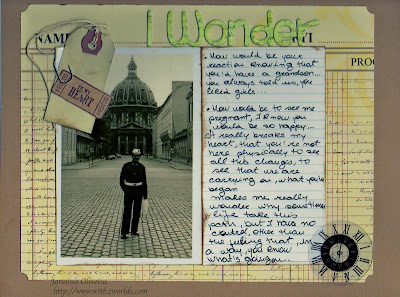 I Wonder
NAME
PRO
IN MY HEART
• How would be your
reaction knowing that
you'd have a grandson...
you always told us, you
liked girls...
• How would be to see me
pregnant, I know you
would be so happy...
It really breaks my
heart, that you're not
here physically to see
all this changes, to
see that we are
carrying on, what you've
began
makes me really
wonder why sometimes
life take this
path, but I have no
control, other than
the feeling that, in
a way, you know
what's going on.
Janaina Oliveira
http://www.with2worlds.com